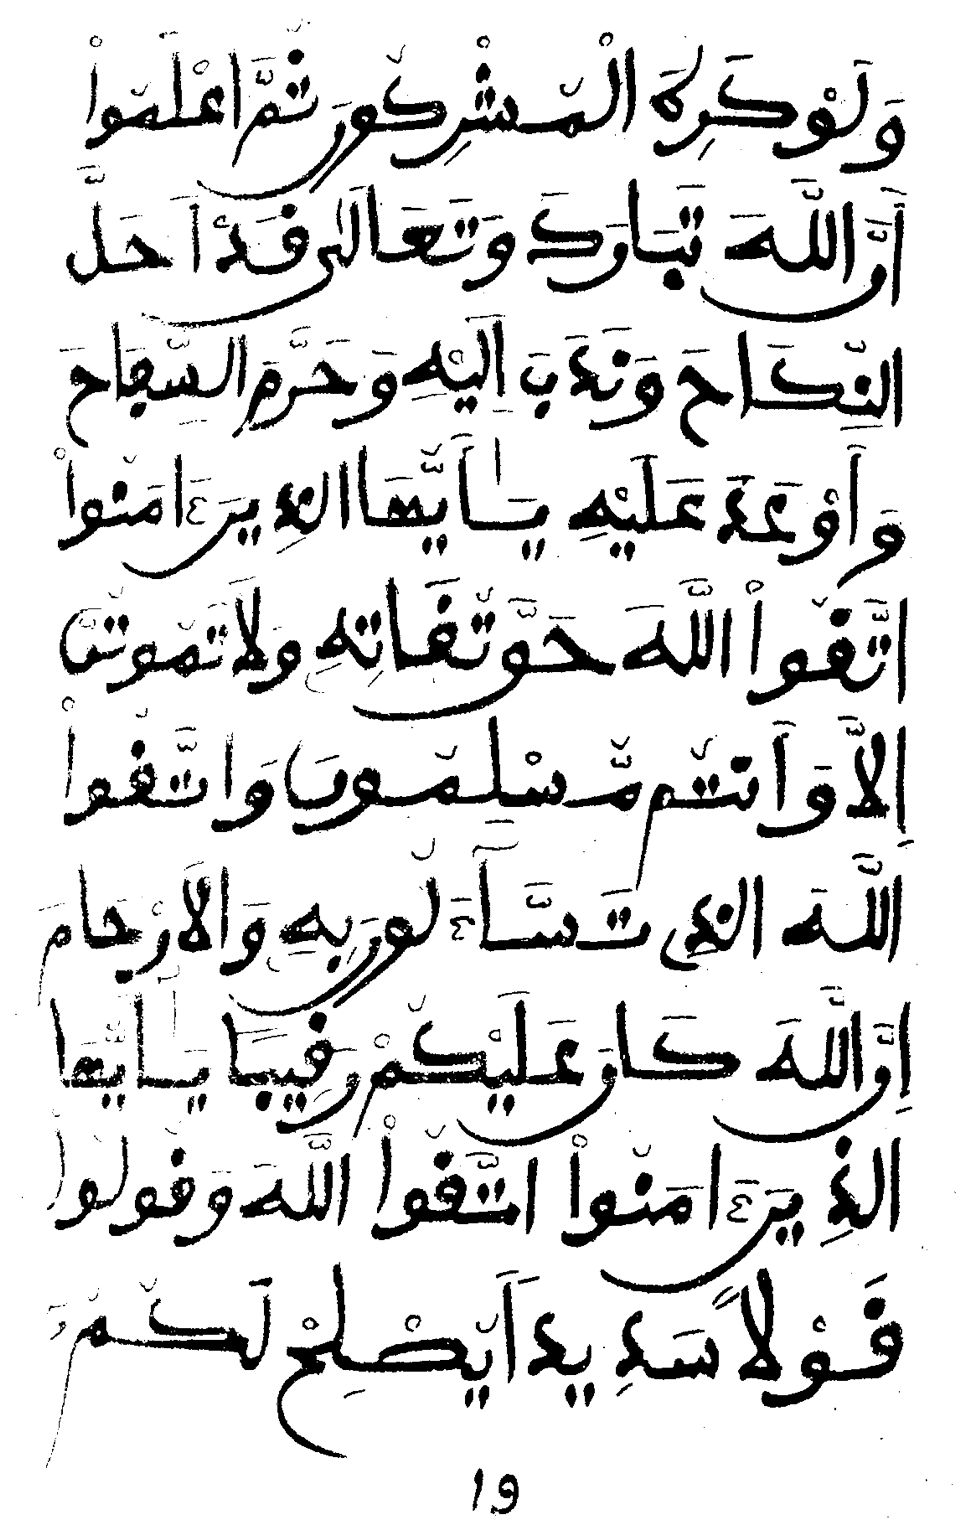 وَلَوْ كَرِهَ الْمُشْرِكُونَ ثُمَّ اعْلَمُواْ
أَنَّ اللَّهَ تَبَارَكَ وَتَعَالَى قَدْ أَحَلَّ
النِّكَاحَ وَنَدَبَ إِلَيْهِ وَحَرَّمَ السِّفَاحَ
وَأَوْعَدَ عَلَيْهِ يَٰأَيُّهَا الذِينَ ءَامَنُواْ
اتَّقُواْ اللَّهَ حَقَّ تُقَاتِهِ وَلَا تَمُوتُنَّ
إِلَّا وَأَنتُم مُّسْلِمُونَ وَاتَّقُواْ
اللَّهَ الذِي تَسَّآءَلُونَ بِهِ وَالْأَرْحَامَ
إِنَّ اللَّهَ كَانَ عَلَيْكُمْ رَقِيبًا يَٰأَيُّهَا
الذِينَ ءَامَنُواْ اتَّقُواْ اللَّهَ وَقُولُواْ
قَوْلاً سَدِيداً يُصْلِحْ لَكُمُ
19